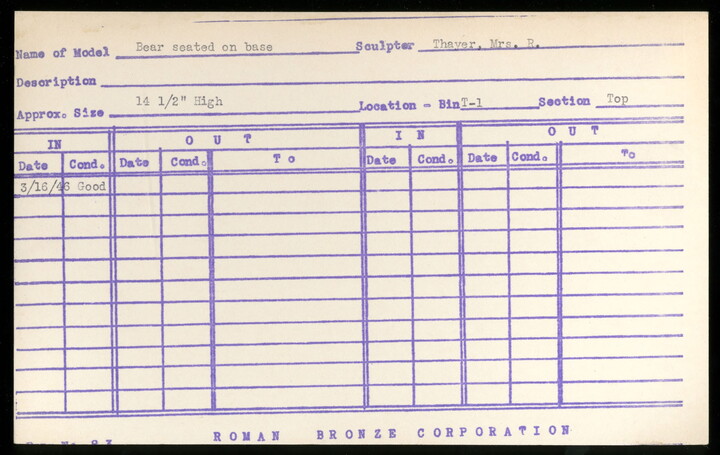 Name of Model Bear seated on base Sculpter Thayer, Mrs. R.
Description
Approx. Size 14 1/2" High Location - Bin T-1 Section Top
IN OUT IN OUT
Date Cond. Date Cond. To Date Cond. Date Cond. To
3/16/46 Good
ROMAN BRONZE CORPORATION